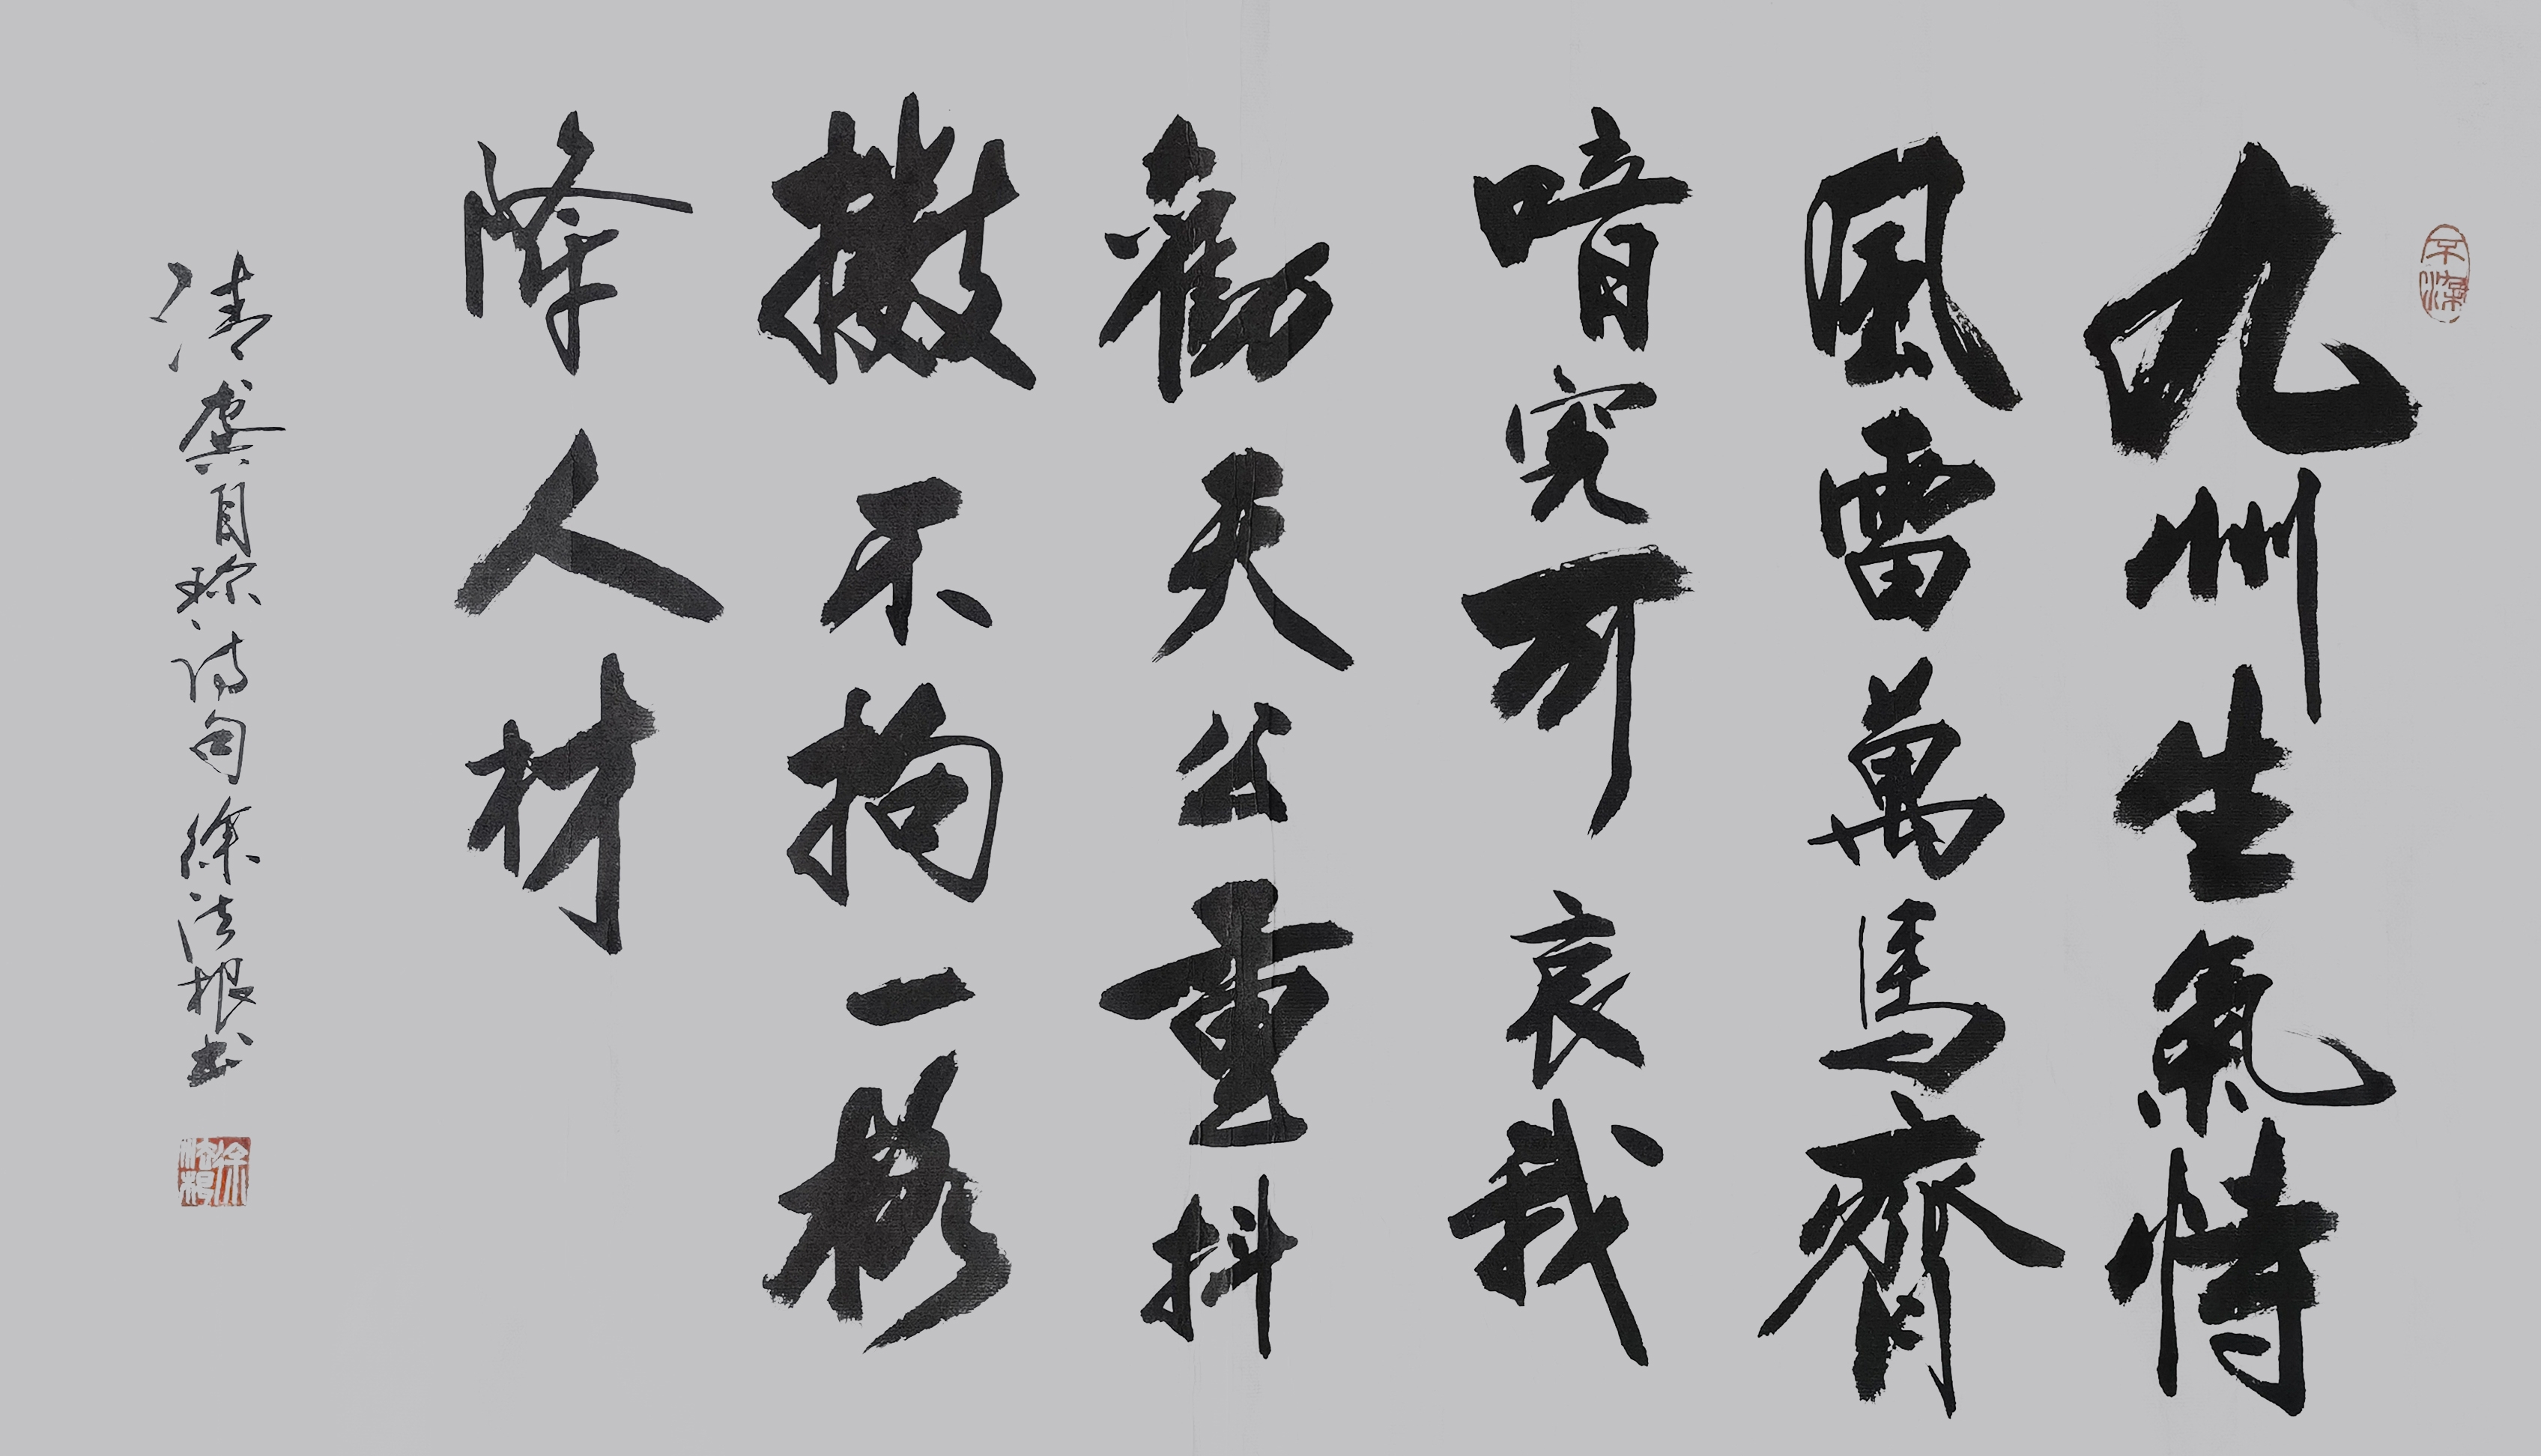 九州生氣恃
風雷萬馬齊
喑究可哀我
勸天公重抖
擻不拘一格
降人材
清龔自珍詩句徐法根书
徐法根